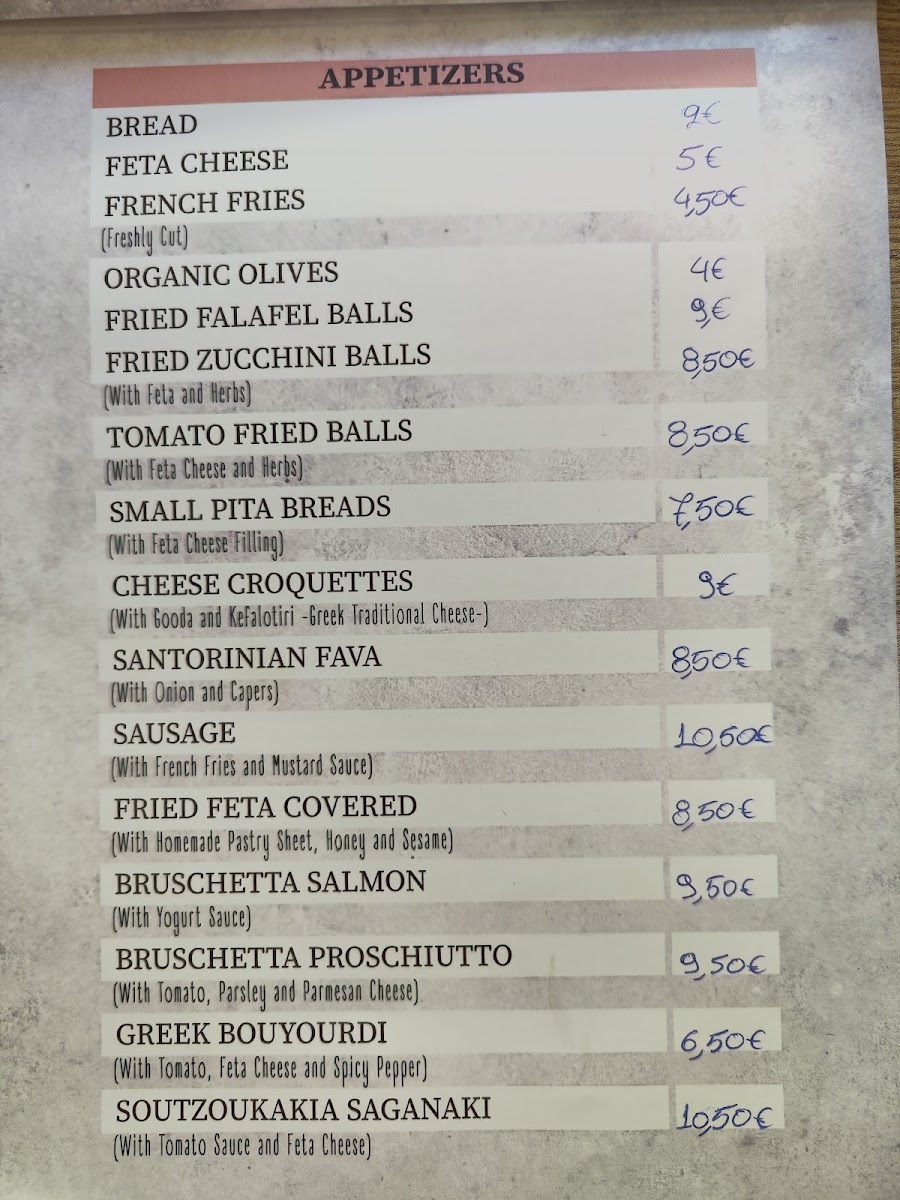 APPETIZERS
BREAD 2€
FETA CHEESE 5€
FRENCH FRIES 4,50€
(Freshly Cut)
ORGANIC OLIVES 4€
FRIED FALAFEL BALLS 9€
FRIED ZUCCHINI BALLS 8,50€
(With Feta and Herbs)
TOMATO FRIED BALLS 8,50€
(With Feta Cheese and Herbs)
SMALL PITA BREADS 7,50€
(With Feta Cheese Filling)
CHEESE CROQUETTES 9€
(With Gooda and Kefalotiri -Greek Traditional Cheese-)
SANTORINIAN FAVA 8,50€
(With Onion and Capers)
SAUSAGE 10,50€
(With French Fries and Mustard Sauce)
FRIED FETA COVERED 8,50€
(With Homemade Pastry Sheet, Honey and Sesame)
BRUSCHETTA SALMON 9,50€
(With Yogurt Sauce)
BRUSCHETTA PROSCHIUTTO 9,50€
(With Tomato, Parsley and Parmesan Cheese)
GREEK BOUYOURDI 6,50€
(With Tomato, Feta Cheese and Spicy Pepper)
SOUTZOUKAKIA SAGANAKI 10,50€
(With Tomato Sauce and Feta Cheese)